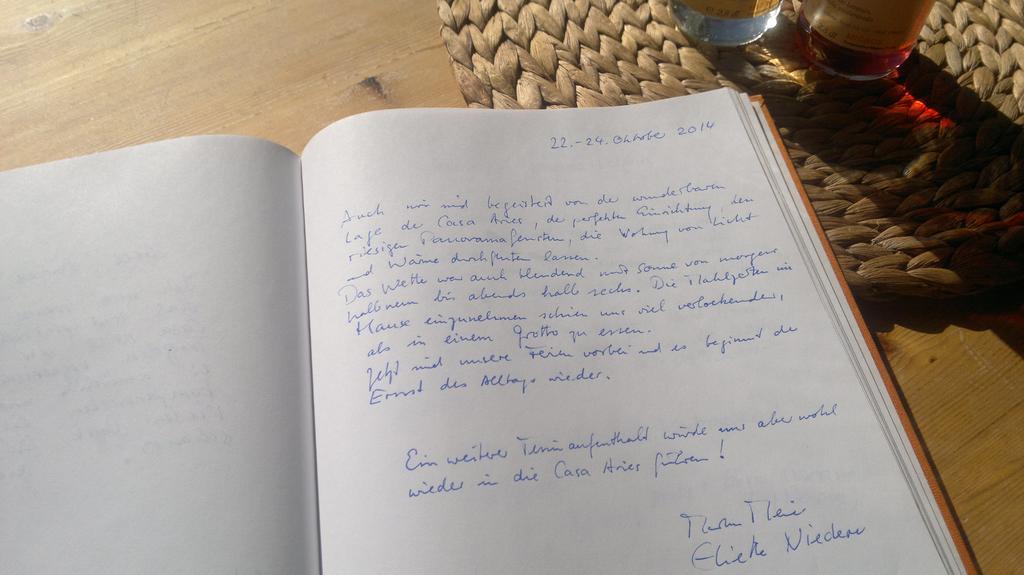 22.-24. Oktober 2014
Auch wir sind begeistert von der wunderbaren
Lage der Casa Aries, der perfekten Einrichtung, den
riesigen Panoramafenstern, die Wohnung von Licht
und Wärme durchfluten lassen.
Das Wetter war auch blendend mit Sonne von morgens
halb neun bis abends halb sechs. Die Mahlzeiten im
Hause einzunehmen schien uns viel verlockender,
als in einem Grotto zu essen.
Jetzt sind unsere Ferien vorbei und es beginnt der
Ernst des Alltags wieder.
Ein weiterer Ferienaufenthalt würde uns aber wohl
wieder in die Casa Aries führen!
Eliette